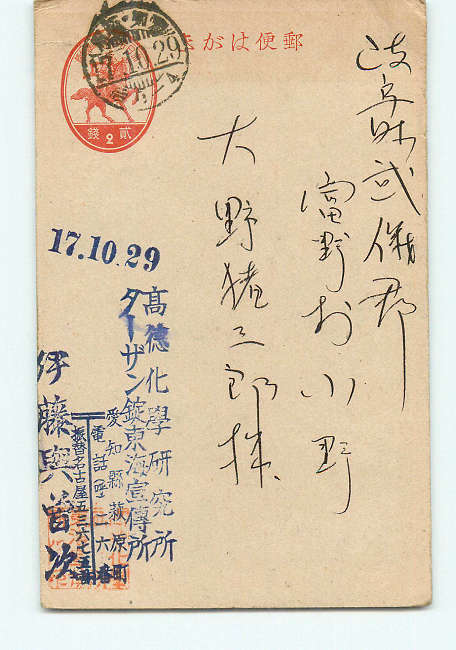 郵便はがき
貳 2 錢
17.10.29
岐阜縣武儀郡
富野村小野
大野猪三郎様
17.10.29
高德化學研究所
ターザン錠東海宣傳所
愛知縣萩原町
電話呼二六番
振替名古屋五三六七五番
伊藤與曽次